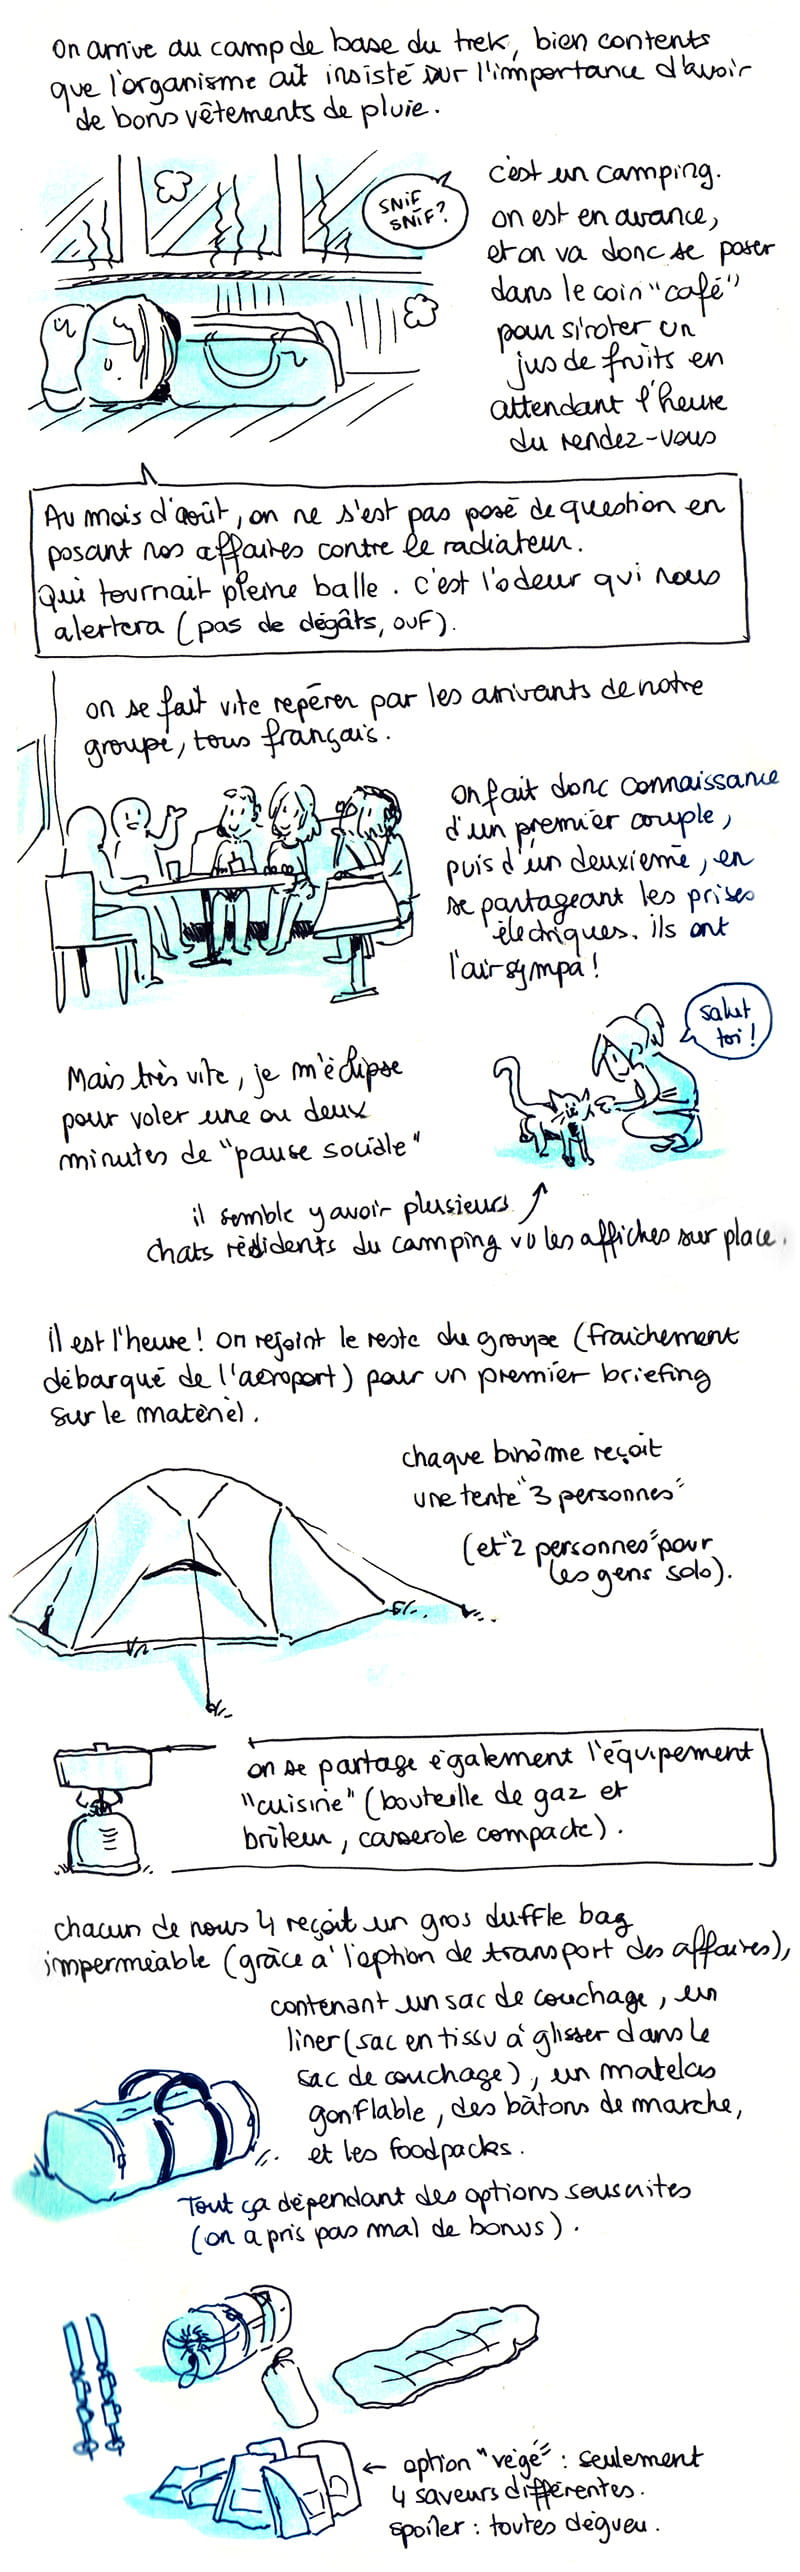 On arrive au camp de base du trek, bien contents
que l'organisme ait insisté sur l'importance d'avoir
de bons vêtements de pluie.
SNIF
SNIF?
c'est un camping.
on est en avance,
et on va donc se poser
dans le coin "café"
pour siroter un
jus de fruits en
attendant l'heure
du rendez-vous
Au mois d'août, on ne s'est pas posé de question en
posant nos affaires contre le radiateur.
Qui tournait pleine balle. c'est l'odeur qui nous
alertera (pas de dégâts, ouf).
on se fait vite repérer par les arrivants de notre
groupe, tous français.
on fait donc connaissance
d'un premier couple,
puis d'un deuxième, en
se partageant les prises
électriques. ils ont
l'air sympa!
salut
toi!
Mais très vite, je m'éclipse
pour voler une ou deux
minutes de "pause sociale"
il semble y avoir plusieurs
chats résidents du camping vu les affiches sur place.
il est l'heure! on rejoint le reste du groupe (fraîchement
débarqué de l'aéroport) pour un premier briefing
sur le matériel.
chaque binôme reçoit
une tente "3 personnes"
(et "2 personnes" pour
les gens solo).
on se partage également l'équipement
"cuisine" (bouteille de gaz et
brûleur, casserole compacte).
chacun de nous 4 reçoit un gros duffle bag
imperméable (grâce à l'option de transport des affaires),
contenant un sac de couchage, un
liner (sac en tissu à glisser dans le
sac de couchage), un matelas
gonflable, des bâtons de marche,
et les foodpacks.
Tout ça dépendant des options souscrites
(on a pris pas mal de bonus).
← option "végé" : seulement
4 saveurs différentes.
spoiler : toutes dégueu.